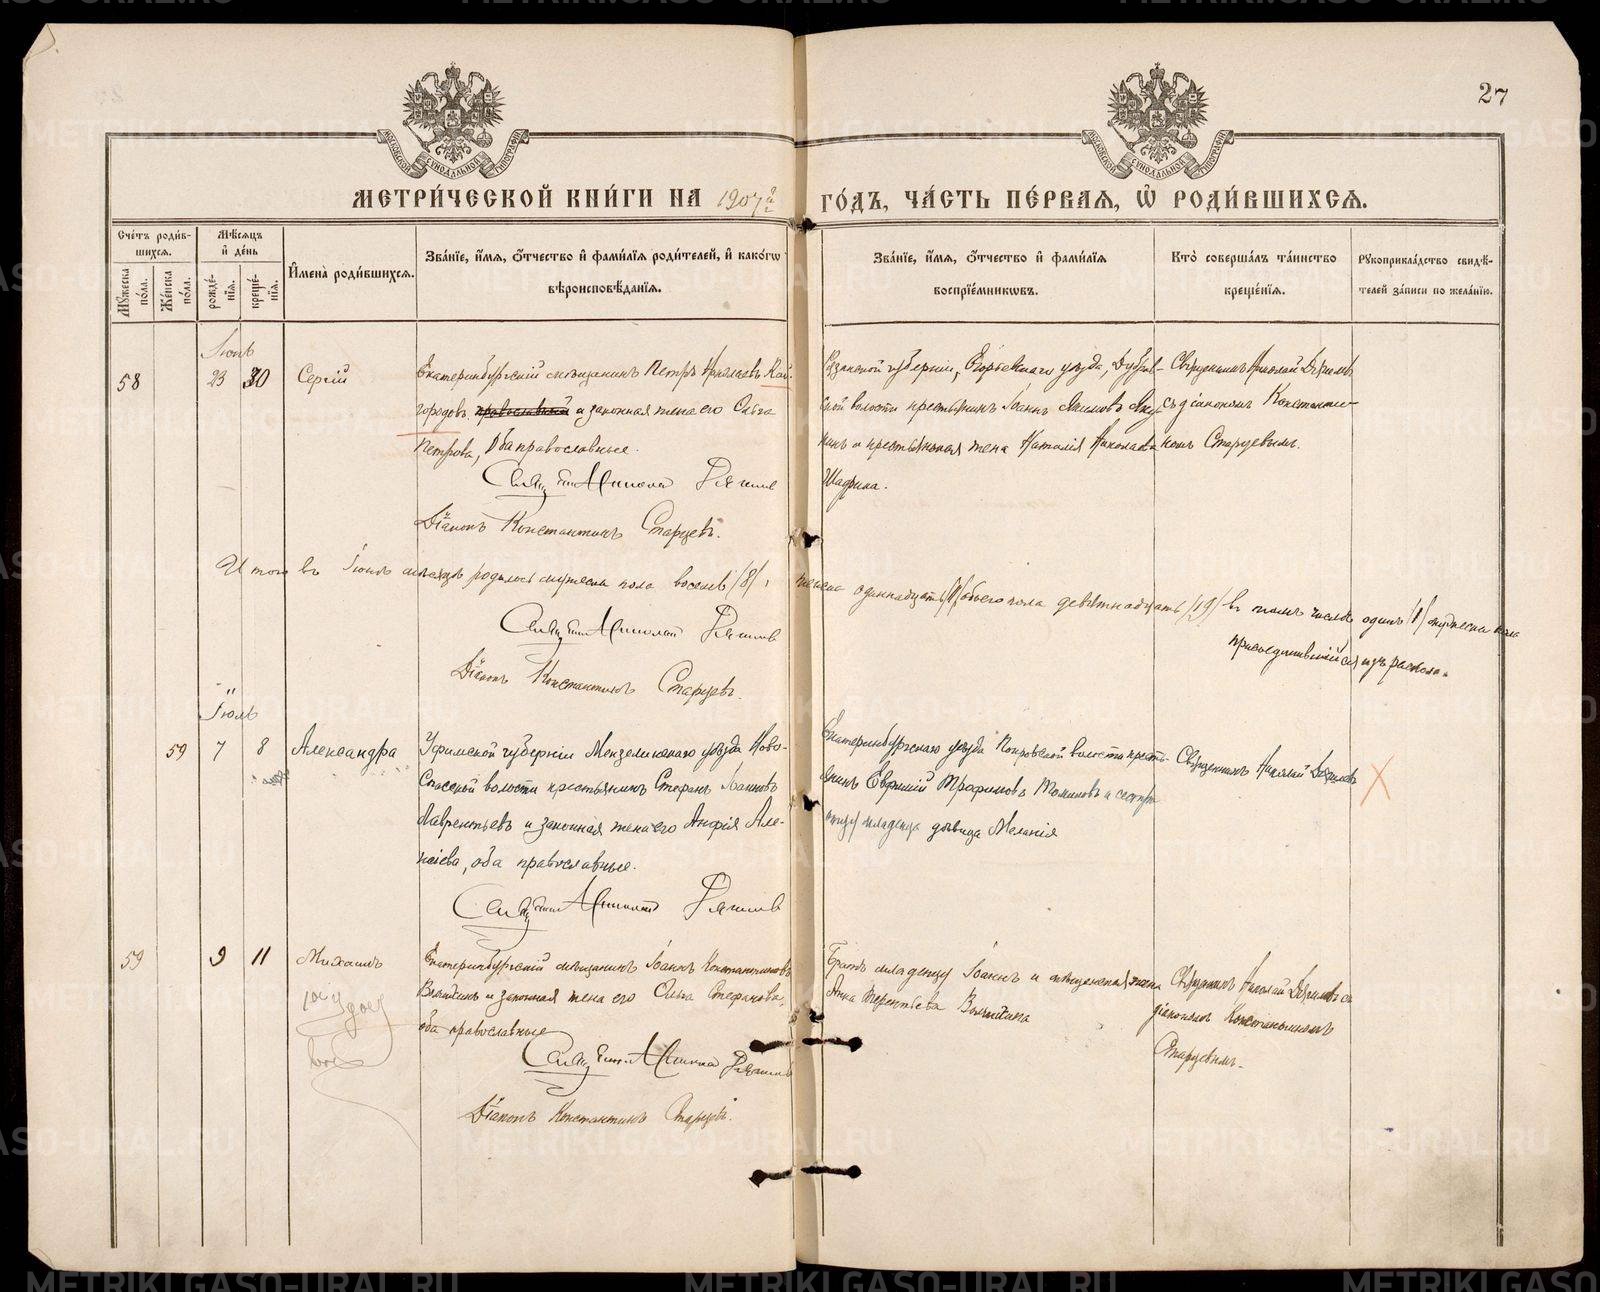 27
МОСКОВСКОЙ СѴНОДАЛЬНОЙ ТИПОГРАФІИ
МОСКОВСКОЙ СѴНОДАЛЬНОЙ ТИПОГРАФІИ
МЕТРИ́ЧЕСКОЙ КНИ́ГИ НА 1907 й ГО́ДЪ, ЧА́СТЬ ПЕ́РВАѦ, Ѿ РОДИ́ВШИХСѦ.
Сче́тъ роди́в-
шихсѧ.
Мꙋ́жеска по́ла.
Же́нска по́ла.
Мѣ́сѧцъ
и҆ де́нь
рожде́-
нїѧ.
креще́-
нїѧ.
И҆мена̀ роди́вшихсѧ.
Зва́нїе, и҆́мѧ, ѻ҆́тчество и҆ фами́лїѧ роди́телей, и҆ како́гѡ
вѣроисповѣ́данїѧ.
Зва́нїе, и҆́мѧ, ѻ҆́тчество и҆ фами́лїѧ
воспрїе́мникѡвъ.
Кто̀ соверша́лъ та́инство
креще́нїѧ.
Рꙋкоприкла́дство свидѣ́-
телей за́писи по жела́нїю.
Іюнь
58 23 30 Сергій
Екатеринбургскій мѣщанинъ Петръ Николаевъ Кай-
городовъ православный и законная жена его Ольга
Петрова, оба православные.
Священникъ Николай
Діаконъ Константинъ Старцевъ.
Казанской губерніи, уѣзда,
ской волости крестьянинъ Іоаннъ Якимовъ
и крестьянская жена Наталія Николаева
Шадрина.
Священникъ Николай
съ діакономъ Константи-
номъ Старцевымъ.
Итого въ Іюнѣ мѣсяцѣ родилось мужеска пола восемь /8/, женска одиннадцать /11/ обоего пола девятнадцать /19/ въ томъ числѣ одинъ /1/ мужеска пола
присоединившійся изъ раскола.
Священникъ Николай
Діаконъ Константинъ Старцевъ.
Іюль
59 7 8 Александра
Уфимской губерніи Мензелинскаго уѣзда Ново-
Спасской волости крестьянинъ Стефанъ Іоанновъ
Лаврентьевъ и законная жена его Анфія Але-
ксіева, оба православные.
Священникъ Николай
Екатеринбургскаго уѣзда Покровской волости кресть-
янинъ Евфимій Трофимовъ и сестра
младенца дѣвица Меланія
Священникъ Николай
59 9 11 Михаилъ
Екатеринбургскій мѣщанинъ Іоаннъ Константиновъ
и законная жена его Ольга Стефанова,
оба православные
Священникъ Николай
Діаконъ Константинъ Старцевъ.
Братъ младенца Іоаннъ и мѣщанская жена
Анна Терентьева
Священникъ Николай
діакономъ Константиномъ
Старцевымъ.
METRIKI.GASO-URAL.RU